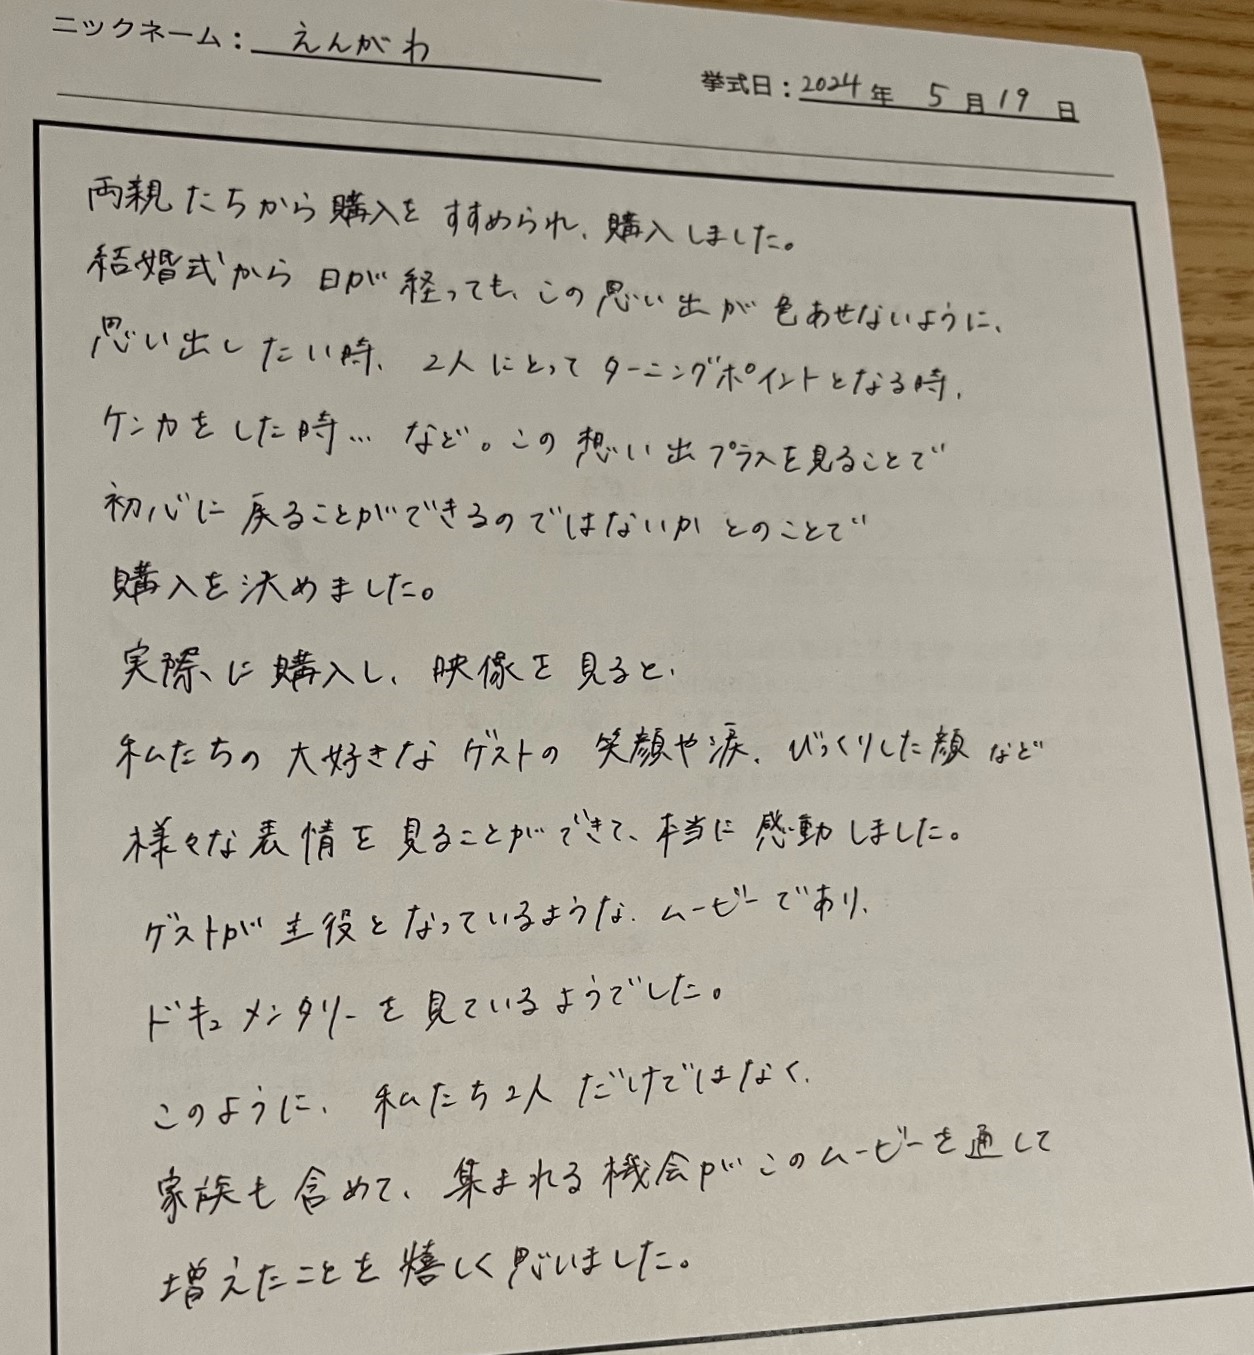 ニックネーム：えんがわ
挙式日：2024年 5月19日
両親たちから購入をすすめられ、購入しました。
結婚式から日が経っても、この思い出が色あせないように、
思い出したい時、2人にとってターニングポイントとなる時、
ケンカをした時…など。この想い出プラスを見ることで
初心に戻ることができるのではないかとのことで
購入を決めました。
実際に購入し、映像を見ると、
私たちの大好きなゲストの笑顔や涙、びっくりした顔など
様々な表情を見ることができて、本当に感動しました。
ゲストが主役となっているような、ムービーであり、
ドキュメンタリーを見ているようでした。
このように、私たち2人だけではなく、
家族も含めて、集まれる機会がこのムービーを通して
増えたことを嬉しく思いました。